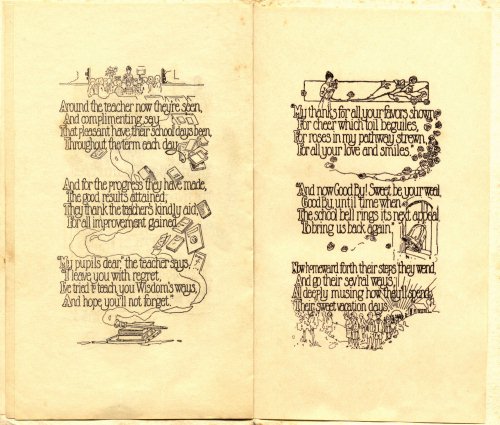 Around the teacher now they're seen,
And complimenting, say
That pleasant have their school days been,
Throughout the term each day.
And for the progress they have made,
The good results attained,
They thank the teacher's kindly aid
For all improvement gained.
"My pupils dear," the teacher says
"I leave you with regret,
I've tried to teach you Wisdom's ways,
And hope, you'll not forget."
"My thanks for all your favors shown
For cheer which toil beguiles,
For roses in my pathway strewn,
For all your love and smiles."
"And now Good By! Sweet be your weal,
Good By, until time when
The school bell rings its next appeal
To bring us back again."
Now homeward forth their steps they wend,
And go their sev'ral ways
All deeply musing how they'll spend,
Their sweet vacation days.